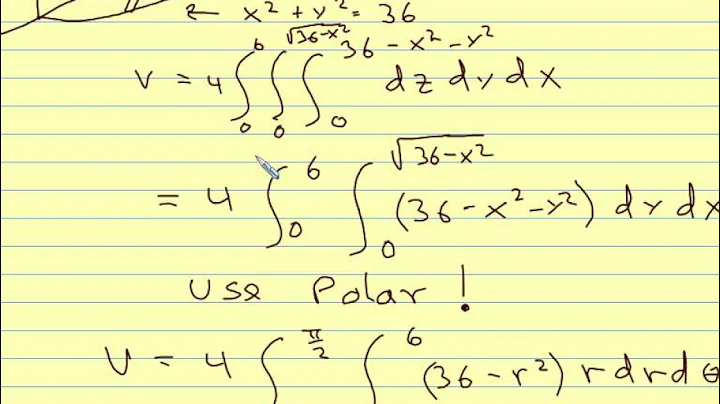 ← x² + y² = 36
V = 4 ∫₀⁶ ∫₀^√(36-x²) ∫₀^(36-x²-y²) dz dy dx
= 4 ∫₀⁶ ∫₀^√(36-x²) (36-x²-y²) dy dx
Use Polar !
V = 4 ∫^(π/2) ∫⁶ (36-r²) r dr dθ